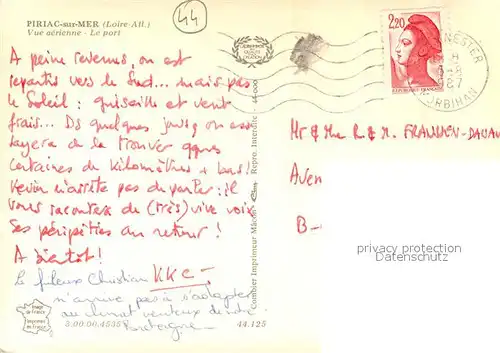 PIRIAC-sur-MER (Loire-Atl.)
Vue aérienne - Le port
44
A peine revenus, on est
repartis vers le Sud... mais pas
le Soleil : grisaille et vent
frais... Ds quelques jours, on ess
ayera de le trouver qques
Centaines de kilomètres + bas !
Kevin n'arrête pas de parler : il
vous racontera de (très) vive voix
Ses péripéties au retour !
A bientôt !
Le frileux Christian KKC
n'arrive pas à s'adapter
au climat venteux de
Bretagne
Image
de France
Imprimé
en France
3.00.00.4535
44.125
Combier Imprimeur Mâcon
Repro. Interdite
44-000
2,20
RÉPUBLIQUE FRANÇAISE
MORBIHAN
Mr & Mme R & M. FRANKEN-
Aven
B-
privacy protection
Datenschutz